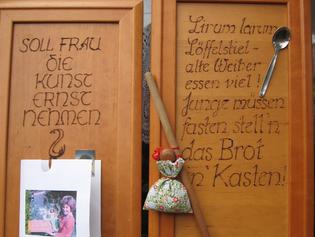 SOLL FRAU
DIE
KUNST
ERNST
NEHMEN
?
Lirum larum
Löffelstiel -
alte Weiber
essen viel!
Junge müssen
fasten stell'n
das Brot
in' Kasten!